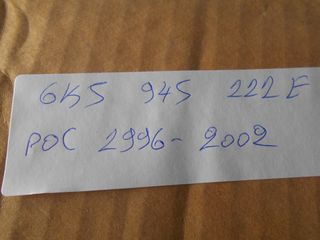 6K5 945 222 E
POC 1996-2002